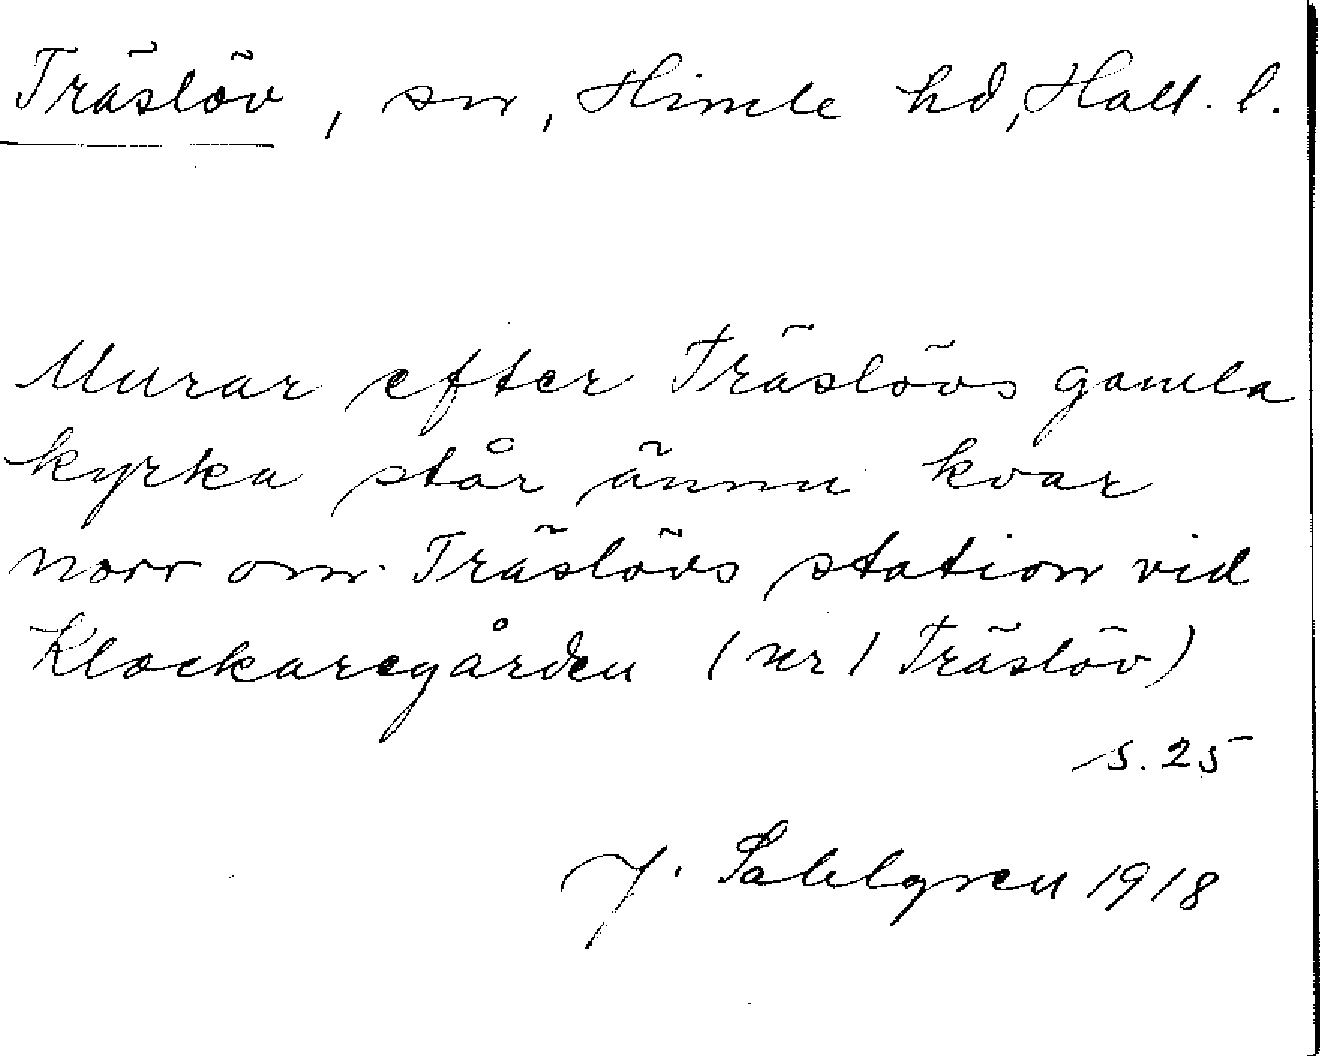 Träslöv, sn, Himle hd, Hall. l.
Murar efter Träslövs gamla
kyrka står ännu kvar
norr om Träslövs station vid
Klockaregården (nr 1 Träslöv)
s. 25
J. Sahlgren 1918